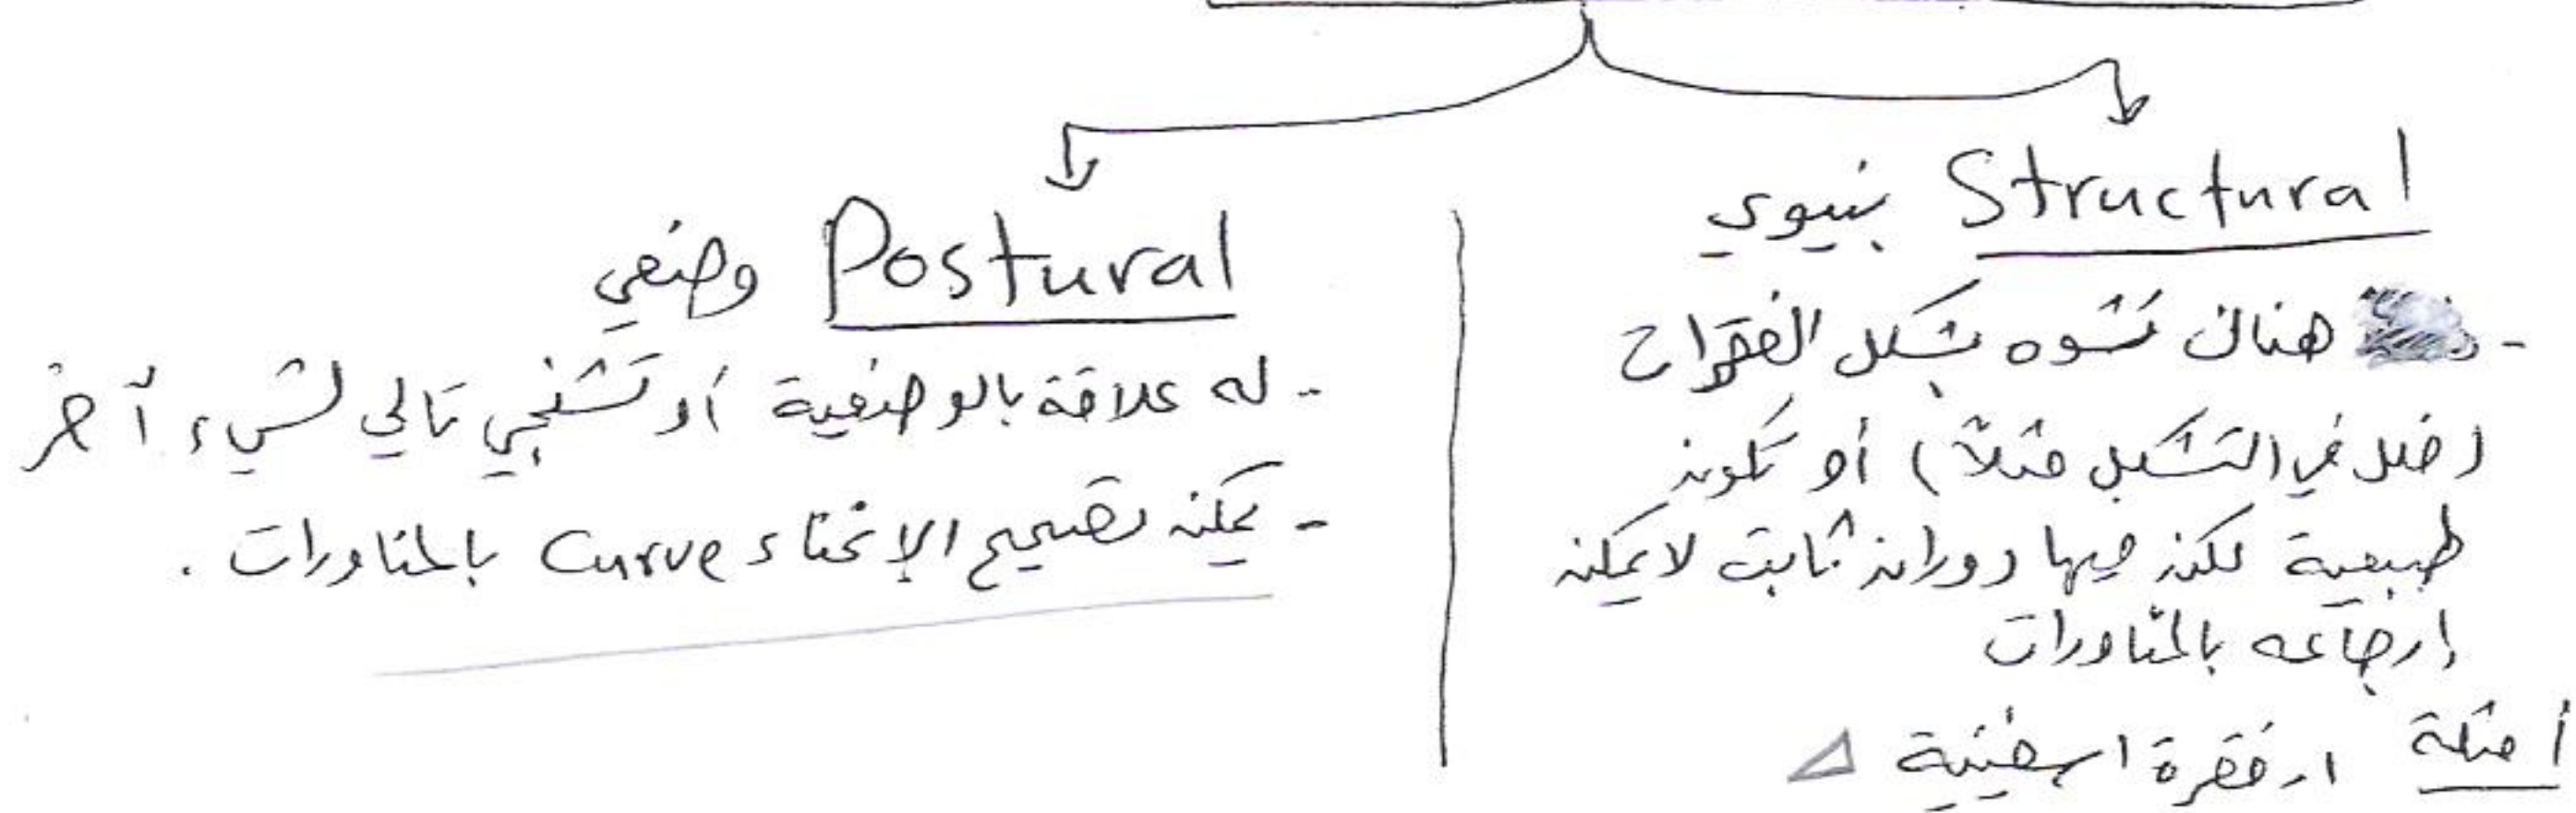 Structural بنيوي
- هناك تشوه بشكل الفقرات
(خلل في التشكل مثلاً) أو تكون
طبيعية لكن فيها دوران ثابت لا يمكن
إرجاعه بالمناورات
أمثلة ١- فقرة اسفينية
Postural وضعي
- له علاقة بالوضعية أو تشنجي تالي لشيء آخر
- يمكن تصحيح الإنحناء Curve بالمناورات.